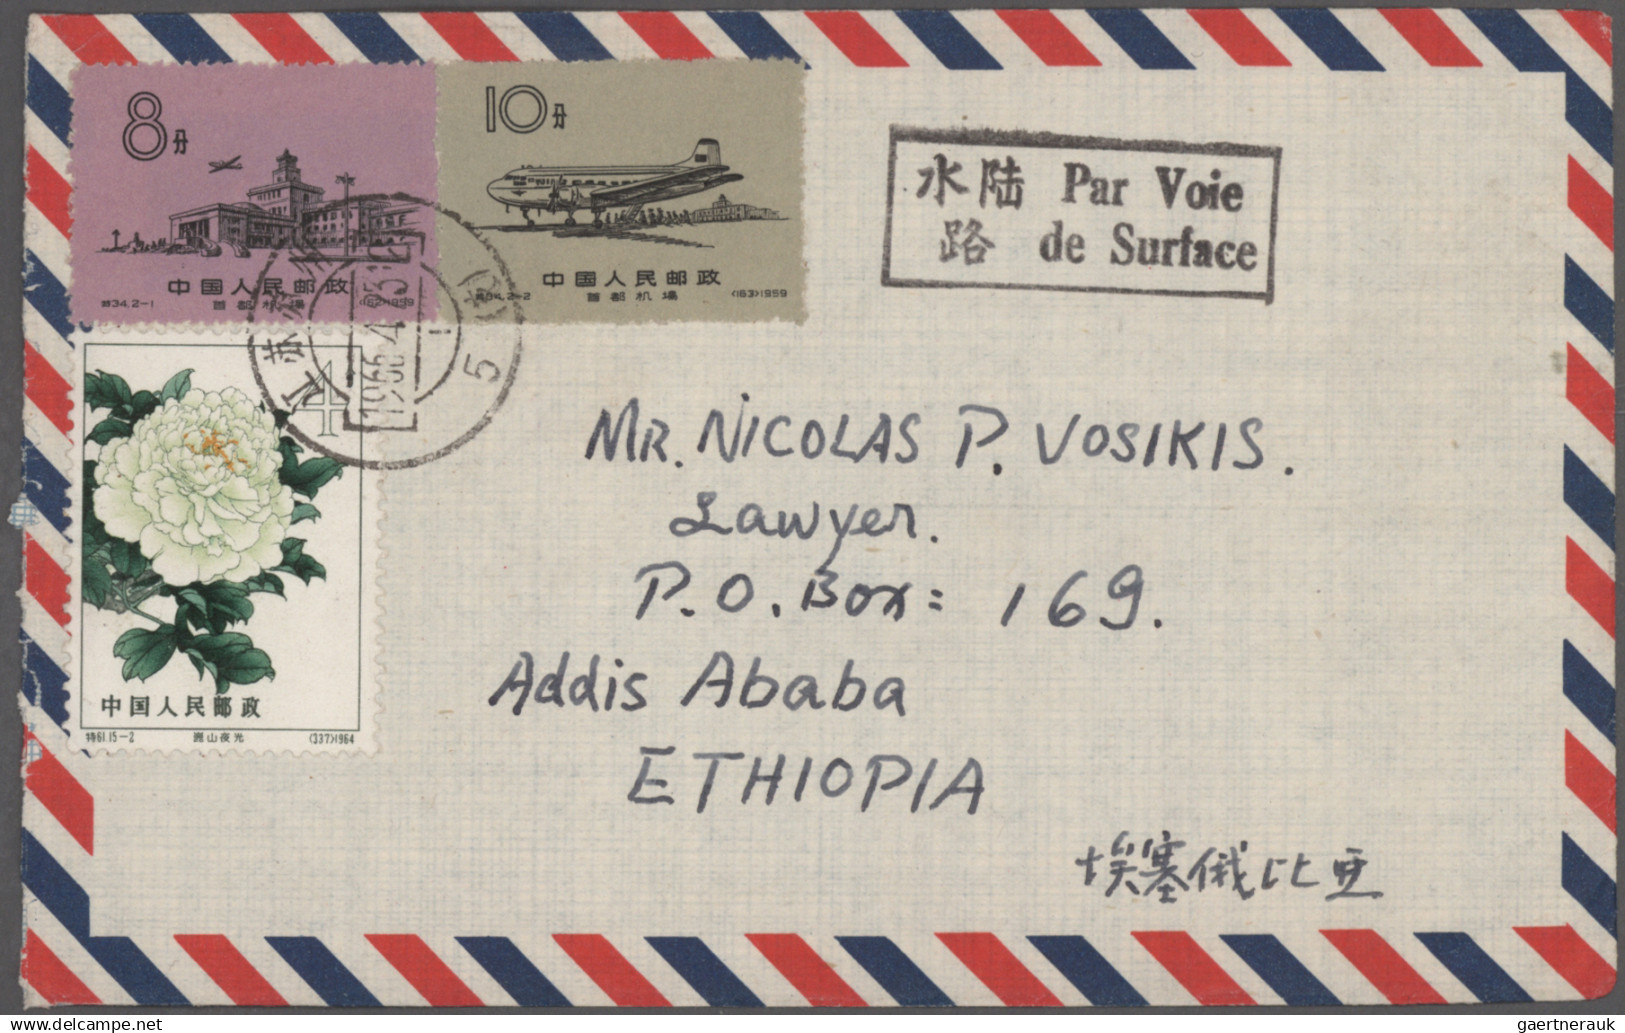 8分
10分
中国人民邮政
特34.2-1 首都机場 (162)1959
中国人民邮政
特34.2-2 首都机場 (163)1959
水陆 Par Voie
路 de Surface
江苏
1966.4.25
5
4
中国人民邮政
特61.15-2 (337)1964
MR. NICOLAS P. VOSIKIS.
Lawyer.
P.O. Box: 169.
Addis Ababa
ETHIOPIA
埃塞俄比亚
stamps-dns.com
gaertnerauk